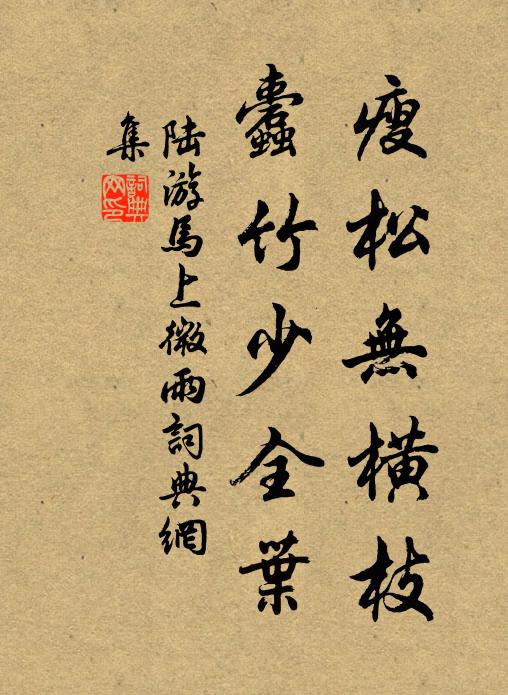 瘦松無橫枝
蠹竹少全葉
陸游馬上微雨詞典網
集
詞典
网印